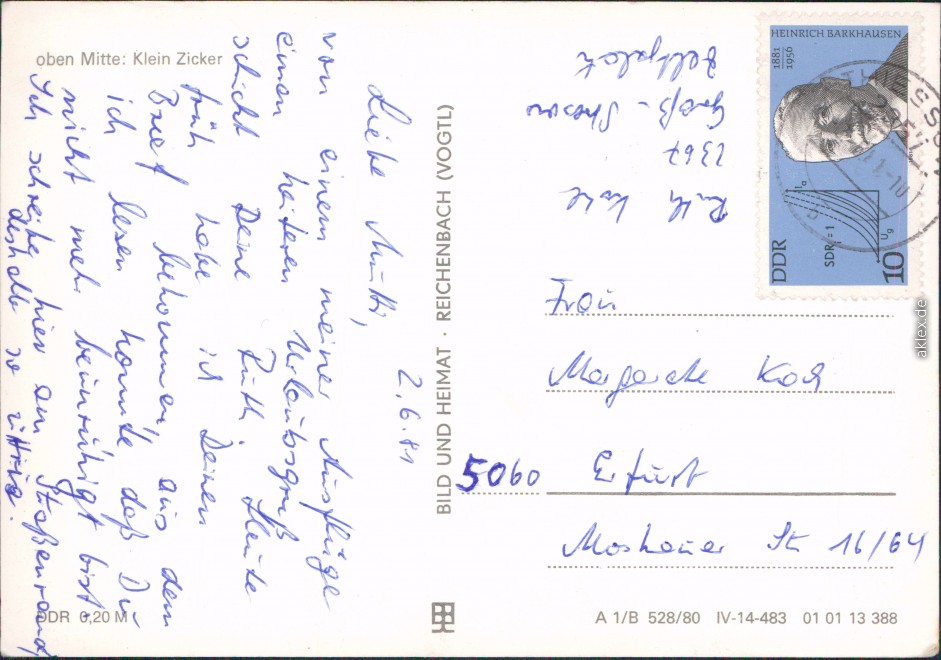 oben Mitte: Klein Zicker
2.6.81
Liebe Mutti,
von einem meiner Ausflüge
einen heiteren Urlaubsgruß
schickt Deine Ruth. Heute
früh habe ich Deinen
Brief bekommen, aus dem
ich lesen konnte, daß Du
nicht mehr beunruhigt bist.
Ich schreibe hier am Straßenrand,
deshalb so zittrig.
DDR 0,20 M
BILD UND HEIMAT · REICHENBACH (VOGTL)
Ruth Koch
2367
Groß-
Zeltplatz
HEINRICH BARKHAUSEN
1881
1956
Ia
Ug
SDRi = 1
DDR
10
Frau
Margarete Koch
5060 Erfurt
Moskauer Str 16/64
A 1/B 528/80 IV-14-483 01 01 13 388
aklex.de